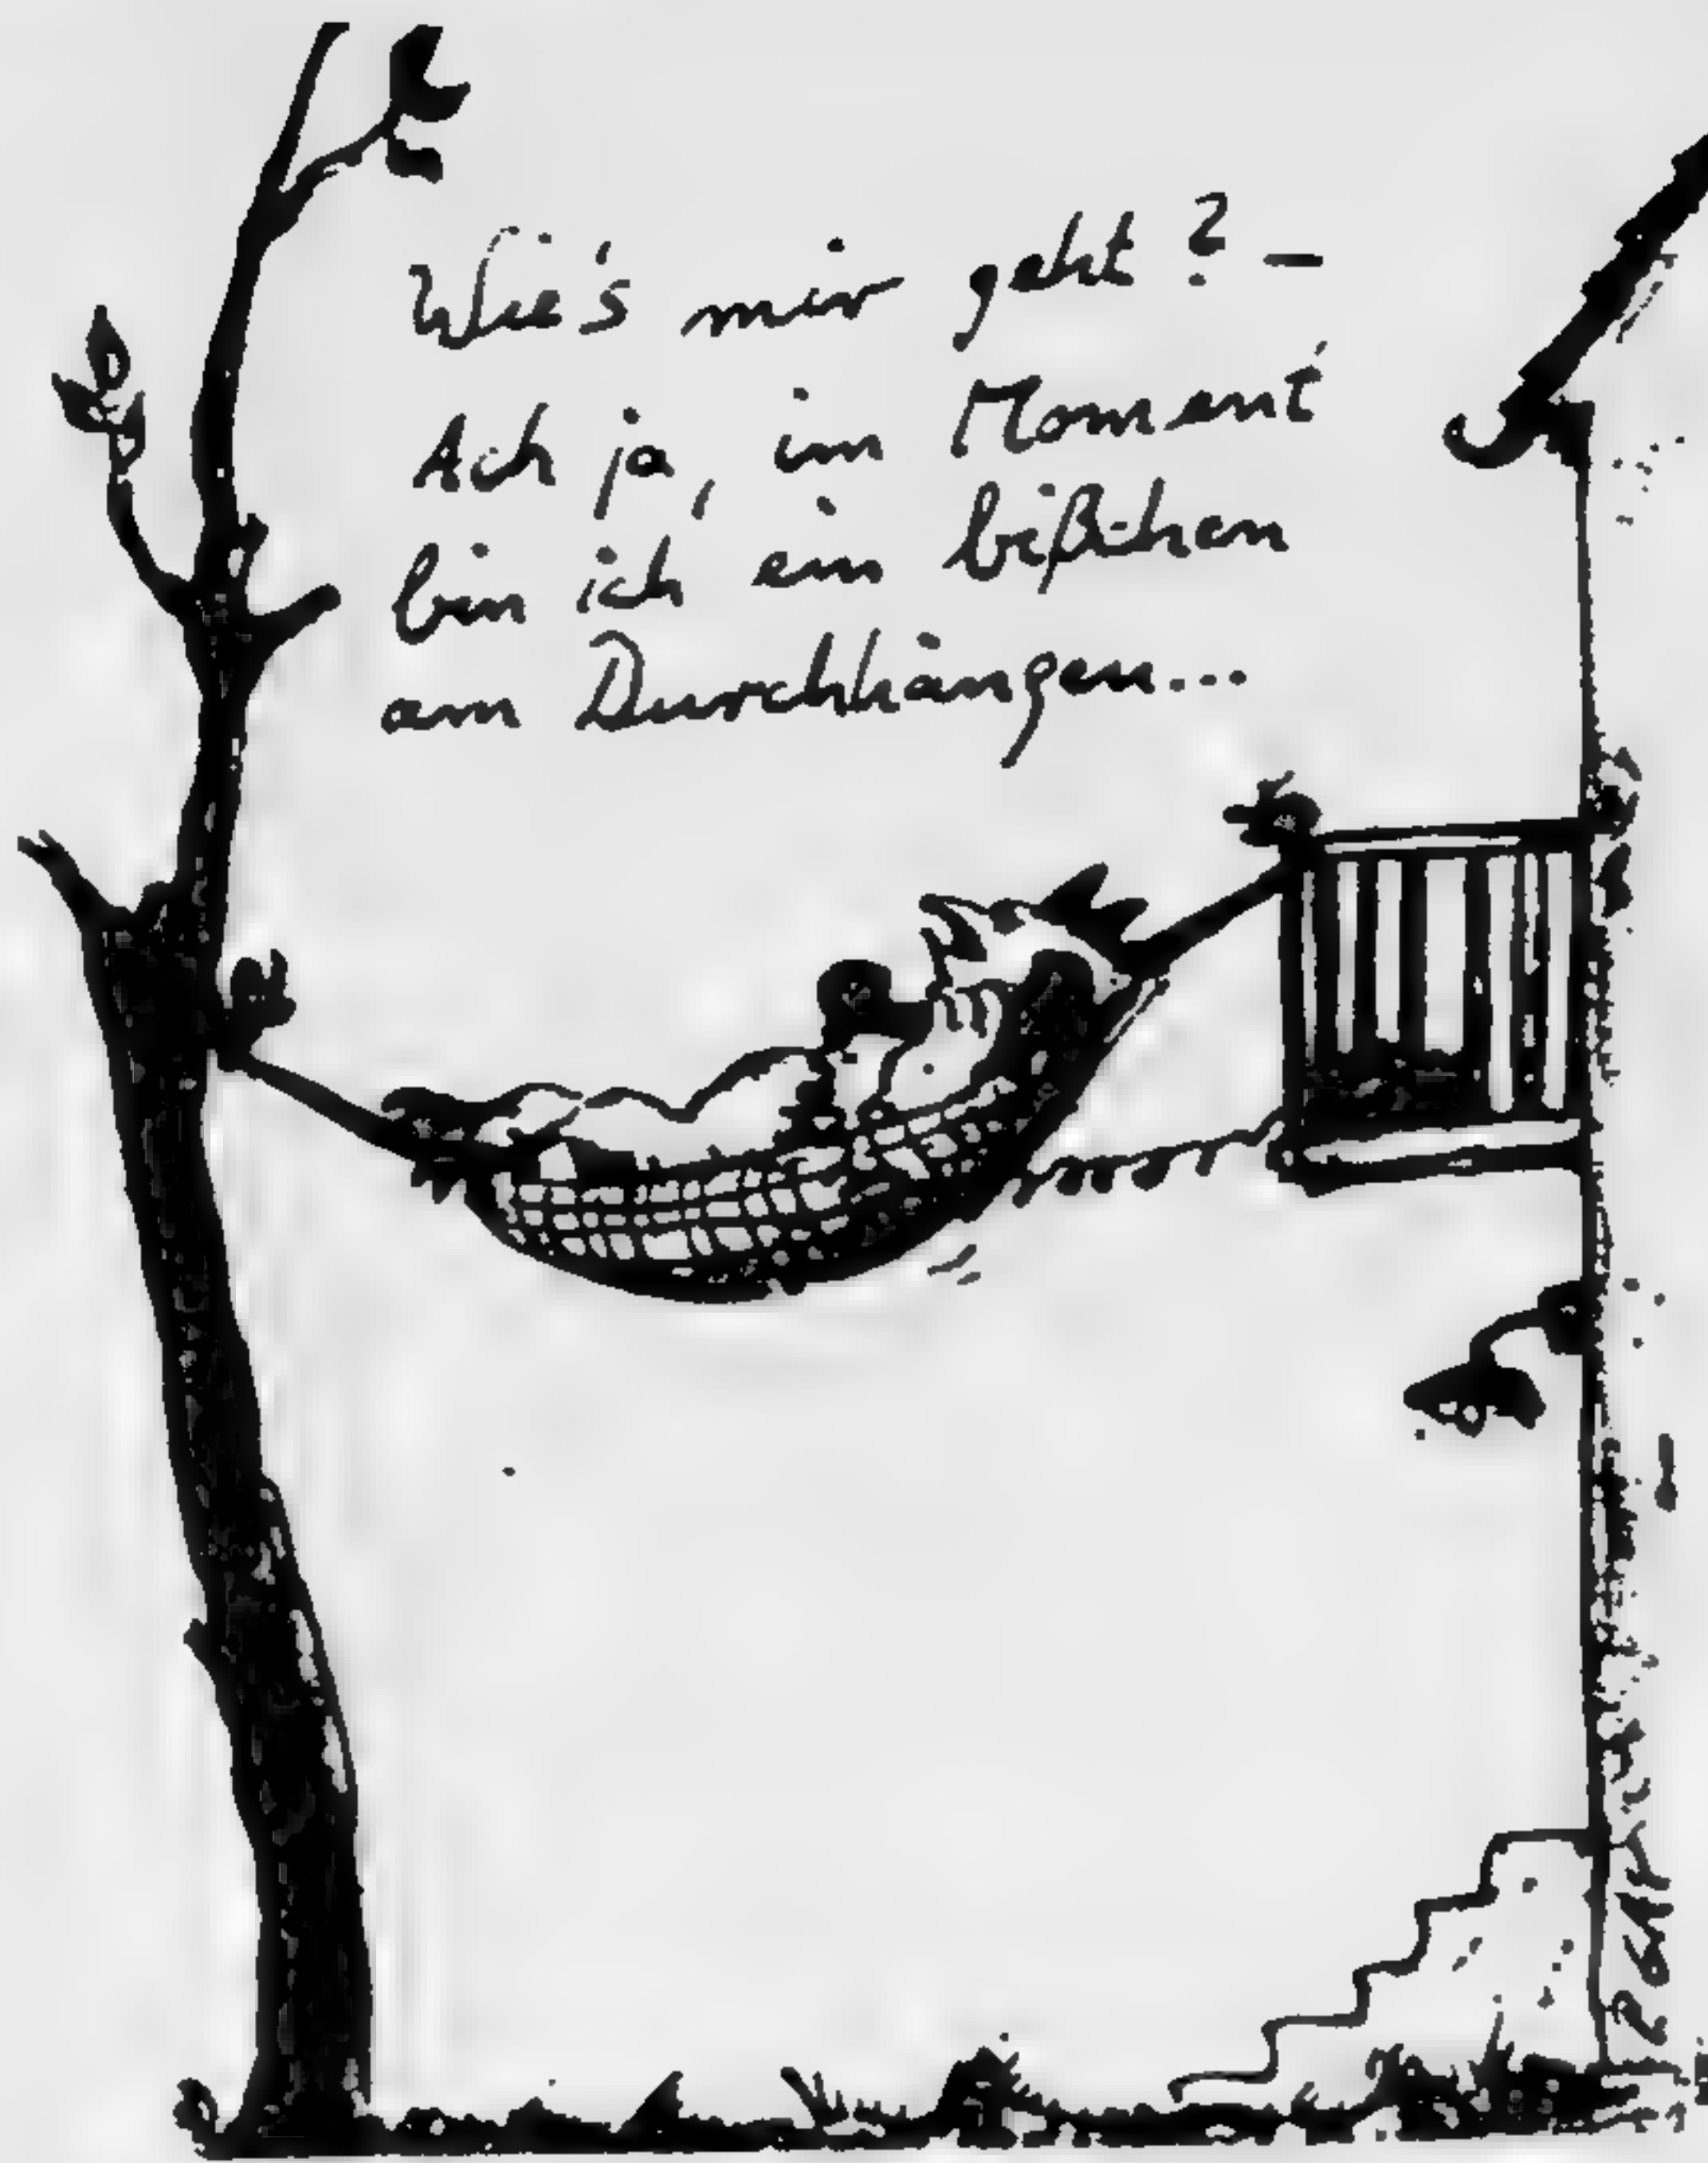 Wie's mir geht? –
Ach ja, im Moment
bin ich ein bißchen
am Durchhängen...